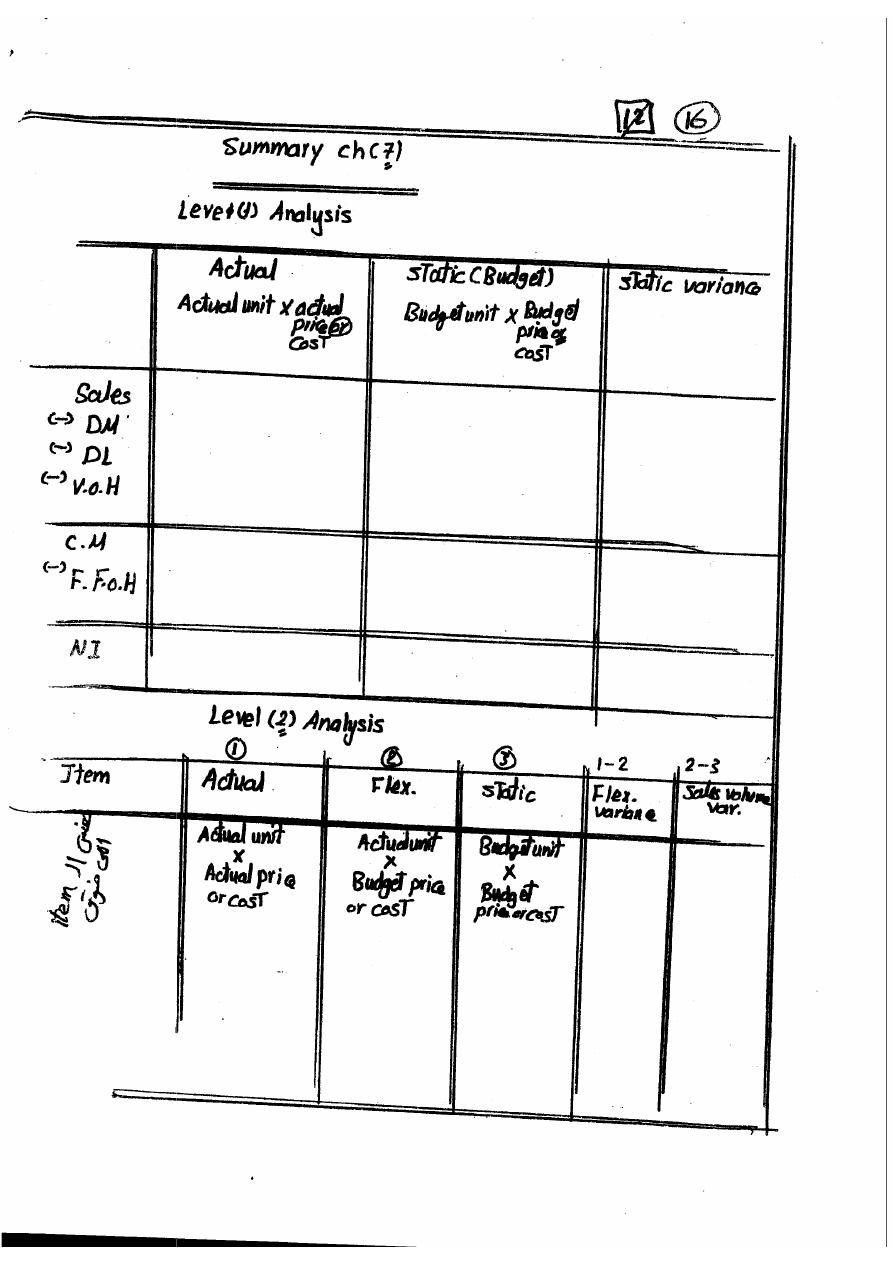 12 16
Summary ch(7)
Level(1) Analysis
Actual
static (Budget)
static variance
Actual unit x actual
price or
cosT
Budget unit x Budget
price or
cosT
Sales
(-) DM
(-) DL
(-) V.o.H
C.M
(-) F. F.o.H
NI
Level (2) Analysis
1 2 3 1-2 2-3
Item
Actual
Flex.
sTatic
Flex.
variance
Sales volume
var.
item ال
Actual unit
x
Actual price
or cosT
Actual unit
x
Budget price
or cosT
Budget unit
x
Budget
price or cosT